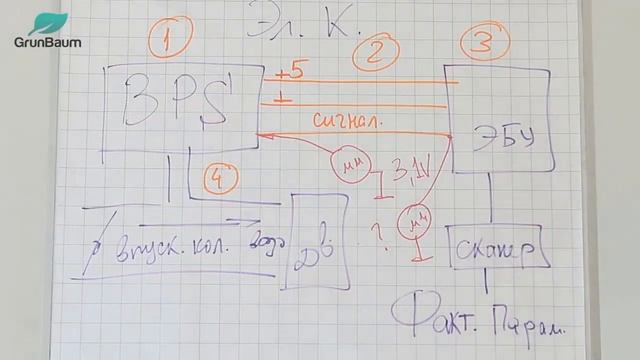 GrunBaum
Эл. К.
1
2
3
+5
⊥
BPS
сигнал.
ЭБУ
мм
3,1V
4
мм
?
впуск. кол.
Дв.
сканер
Факт. Парам.